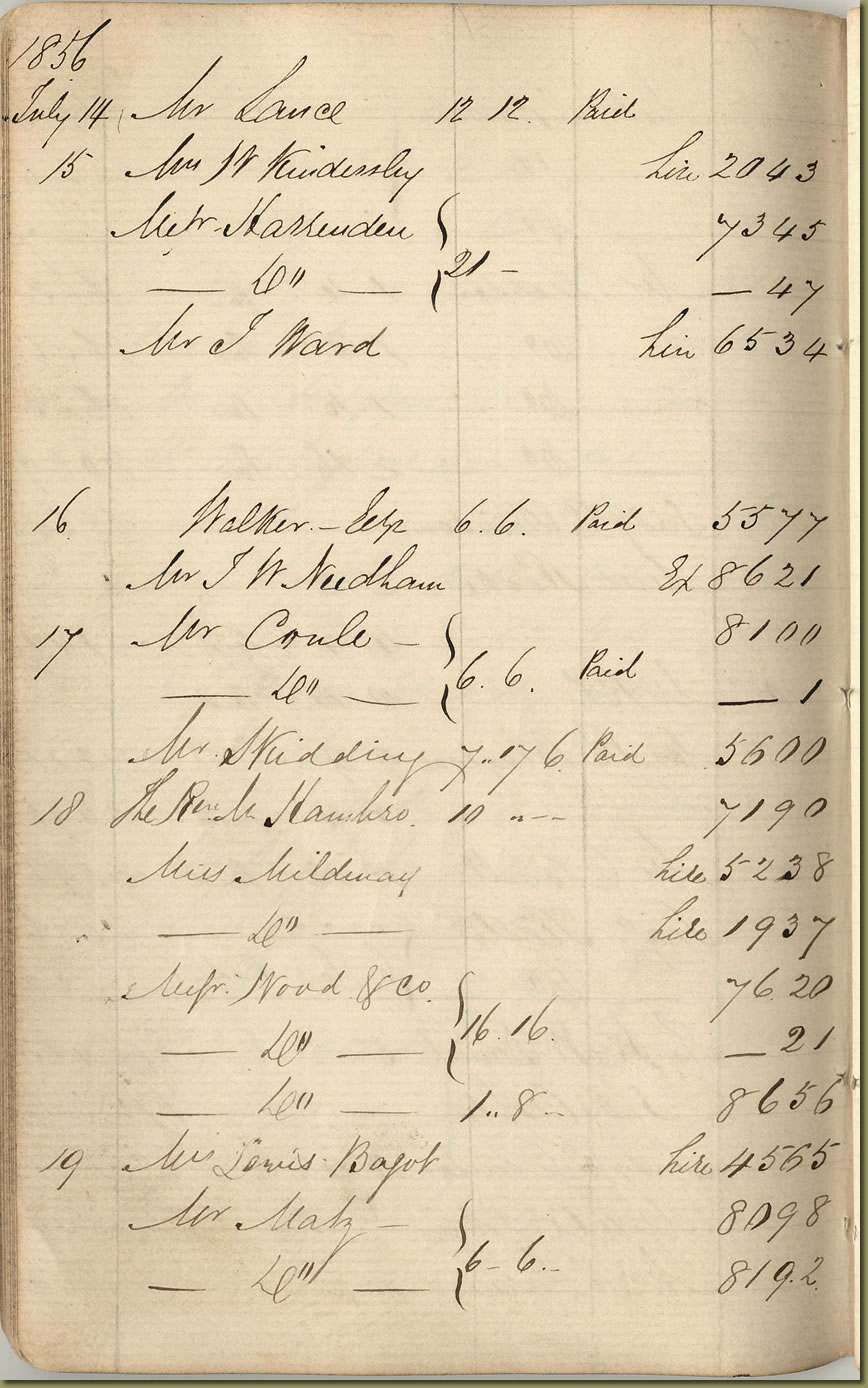 1856
July 14 Mr Lance 12 12. Paid
15 Mrs W Kindersley hire 2043
Messrs Harrenden 7345
21 –
— Do" — — 47
Mr J Ward hire 6534
16 Walker – Esqr 6. 6. Paid 5577
Mr J W Needham Ex 8621
17 Mr Coule – 8100
6. 6. Paid
— Do" — — 1
Mr. Skidding 7.. 17 6 Paid 5600
18 The Revd Mr Hambro. 10 .. – – 7190
Miss Mildmay hire 5238
— Do" — hire 1937
Messrs. Wood & Co. 7620
16. 16.
— Do" — — 21
— Do" — 1.. 8 – 8656
19 Mrs Lewis Bagot hire 4565
Mr Matz – 8098
6 – 6. –
— Do" — 8192